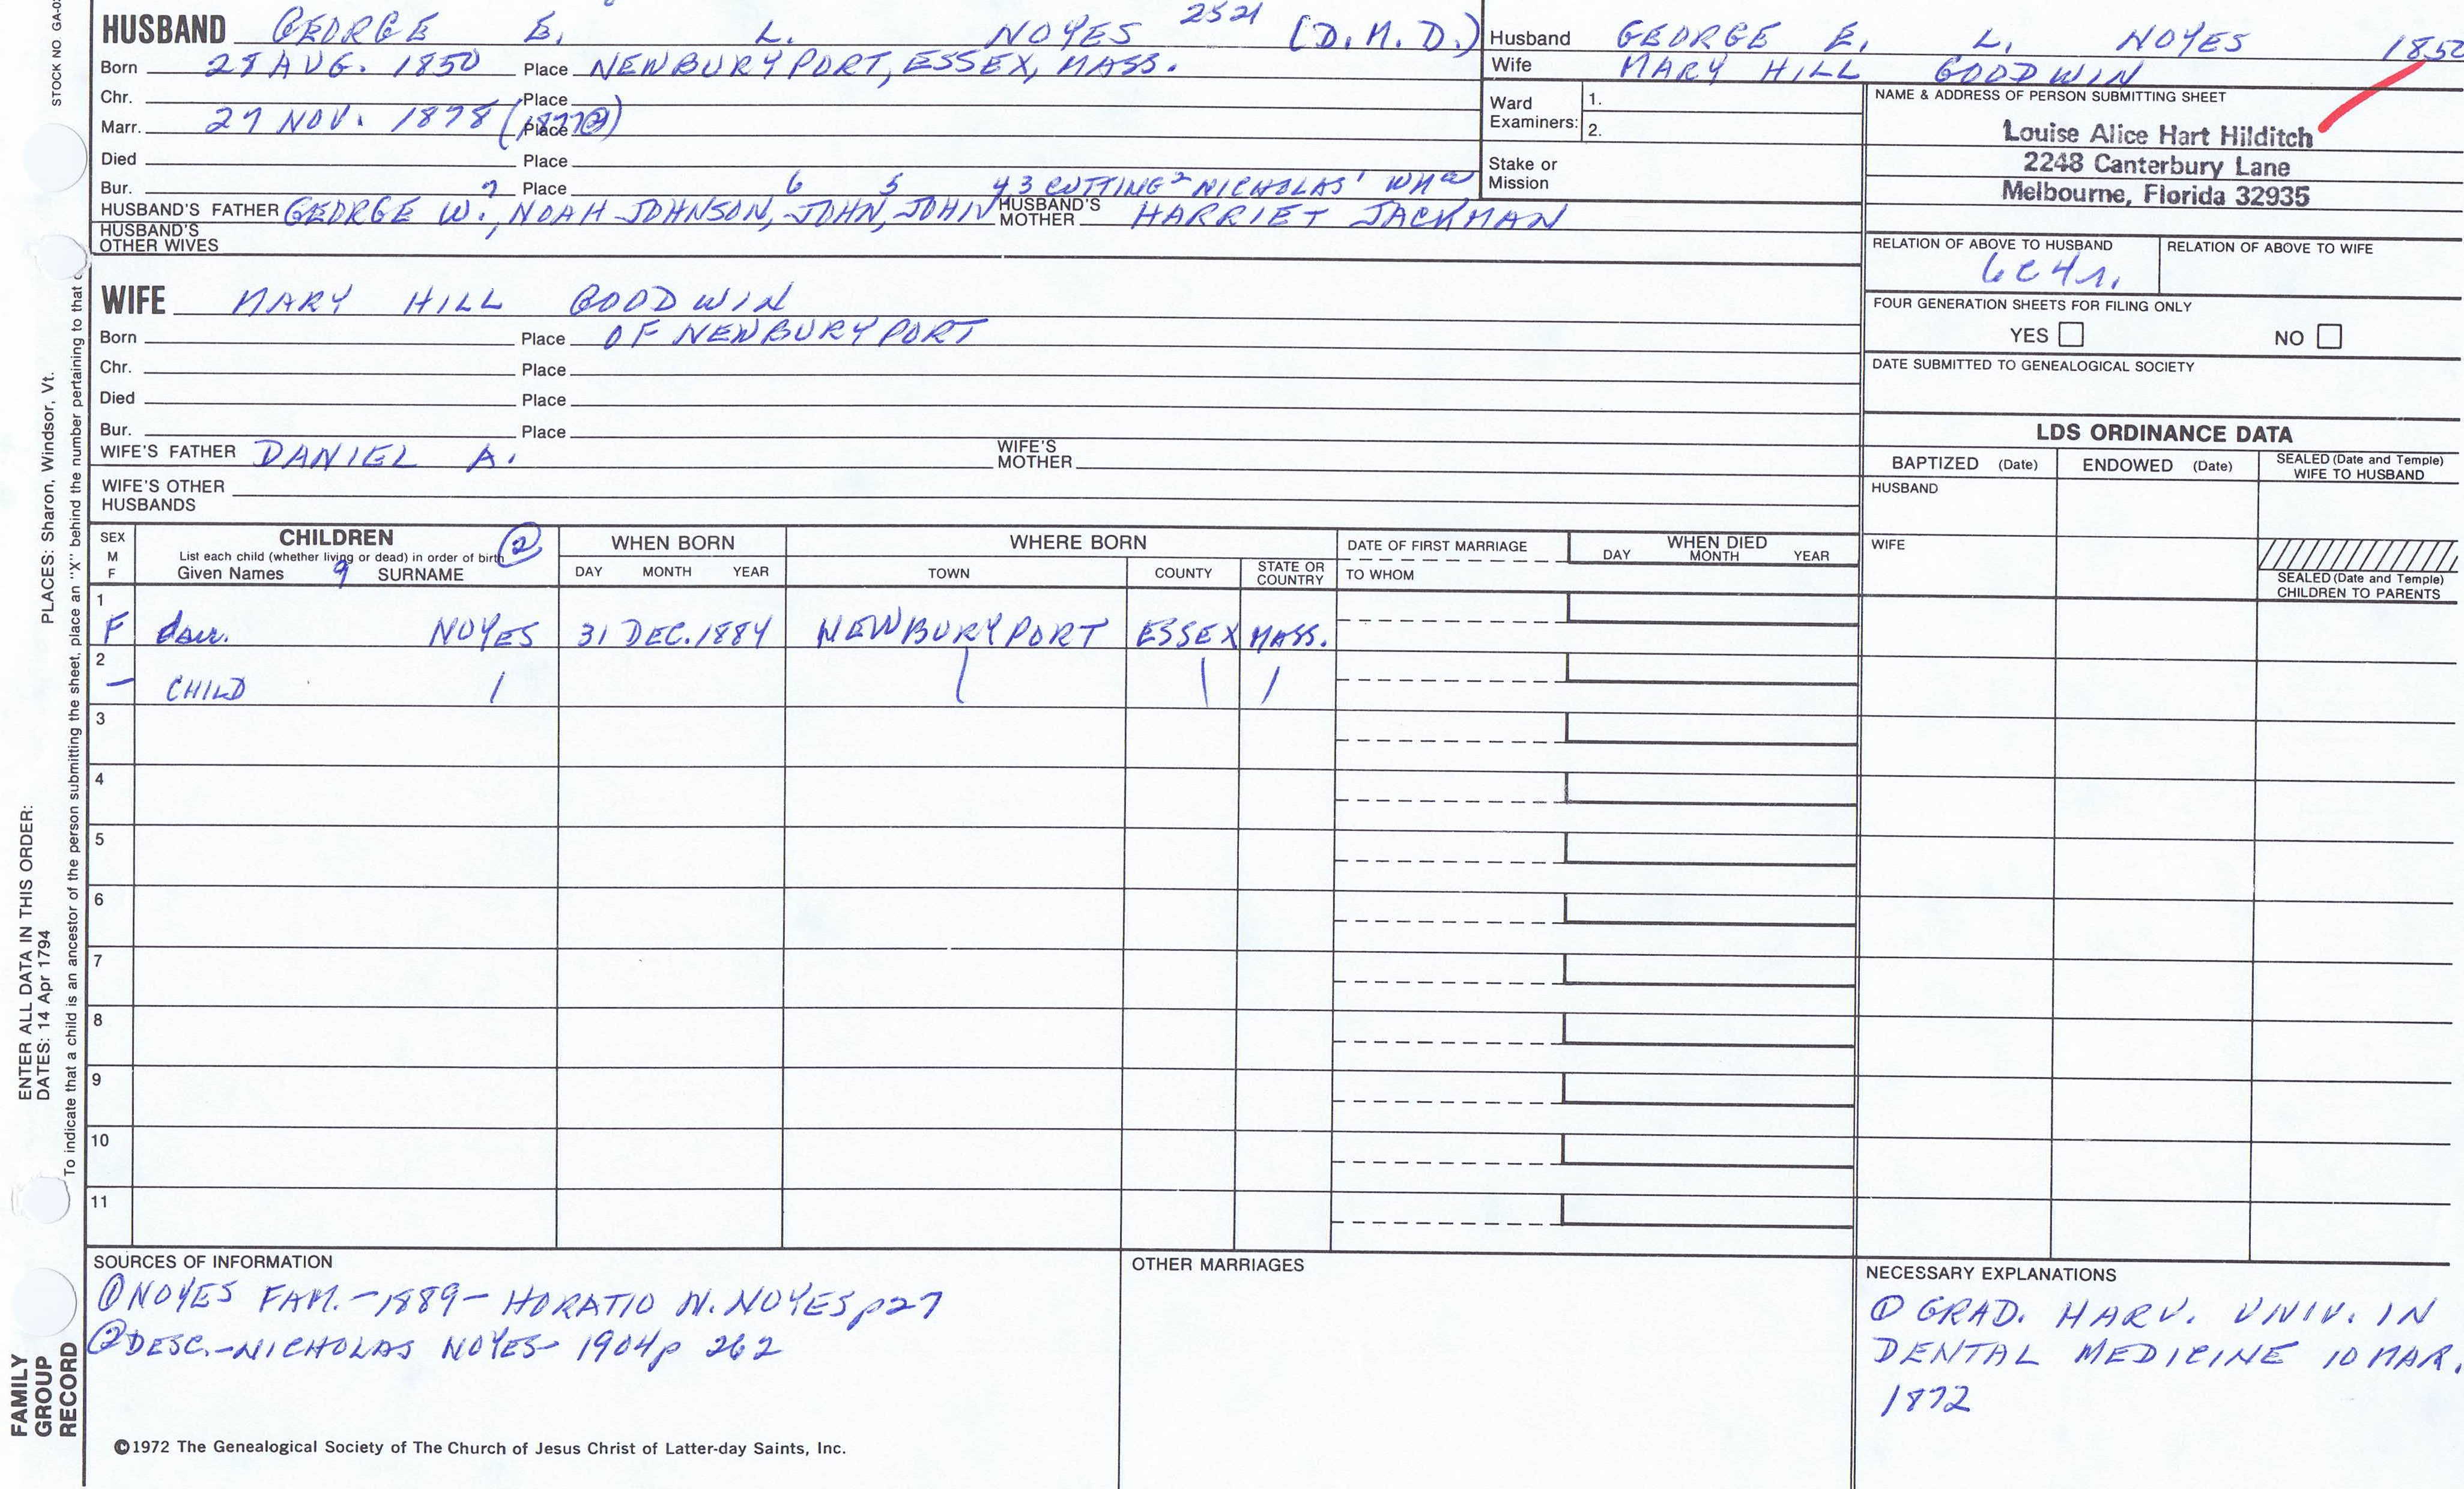 STOCK NO. GA-0
HUSBAND GEORGE E. L. NOYES 2521 (D.M.D.)
Born 28 AUG. 1850 Place NEWBURYPORT, ESSEX, MASS.
Chr. Place
Marr. 27 NOV. 1878 (1877②) Place
Died Place
Bur. Place
HUSBAND'S FATHER GEORGE W.⁷, NOAH JOHNSON⁶, JOHN⁵, JOHN⁴ ³CUTTING² NICHOLAS¹ WMᵃ
HUSBAND'S MOTHER HARRIET JACKMAN
HUSBAND'S OTHER WIVES
WIFE MARY HILL GOODWIN
Born Place OF NEWBURYPORT
Chr. Place
Died Place
Bur. Place
WIFE'S FATHER DANIEL A. WIFE'S MOTHER
WIFE'S OTHER HUSBANDS
Husband GEORGE E. L. NOYES 1850
Wife MARY HILL GOODWIN
Ward Examiners: 1.
2.
Stake or Mission
NAME & ADDRESS OF PERSON SUBMITTING SHEET
Louise Alice Hart Hilditch
2248 Canterbury Lane
Melbourne, Florida 32935
RELATION OF ABOVE TO HUSBAND RELATION OF ABOVE TO WIFE
6C4r.
FOUR GENERATION SHEETS FOR FILING ONLY
YES NO
DATE SUBMITTED TO GENEALOGICAL SOCIETY
LDS ORDINANCE DATA
BAPTIZED (Date) ENDOWED (Date) SEALED (Date and Temple) WIFE TO HUSBAND
HUSBAND
WIFE
SEALED (Date and Temple) CHILDREN TO PARENTS
SEX M F
CHILDREN ②
List each child (whether living or dead) in order of birth
Given Names 9 SURNAME
WHEN BORN
DAY MONTH YEAR
WHERE BORN
TOWN COUNTY STATE OR COUNTRY
DATE OF FIRST MARRIAGE
TO WHOM
WHEN DIED
DAY MONTH YEAR
1 F dau. NOYES 31 DEC. 1884 NEWBURYPORT ESSEX MASS.
2 – CHILD
3
4
5
6
7
8
9
10
11
SOURCES OF INFORMATION
① NOYES FAM. - 1889 - HORATIO N. NOYES p27
② DESC. - NICHOLAS NOYES - 1904 p 262
OTHER MARRIAGES
NECESSARY EXPLANATIONS
① GRAD. HARV. UNIV. IN
DENTAL MEDICINE 10 MAR.
1872
©1972 The Genealogical Society of The Church of Jesus Christ of Latter-day Saints, Inc.
PLACES: Sharon, Windsor, Vt.
To indicate that a child is an ancestor of the person submitting the sheet, place an "X" behind the number pertaining to that
ENTER ALL DATA IN THIS ORDER:
DATES: 14 Apr 1794
FAMILY
GROUP
RECORD